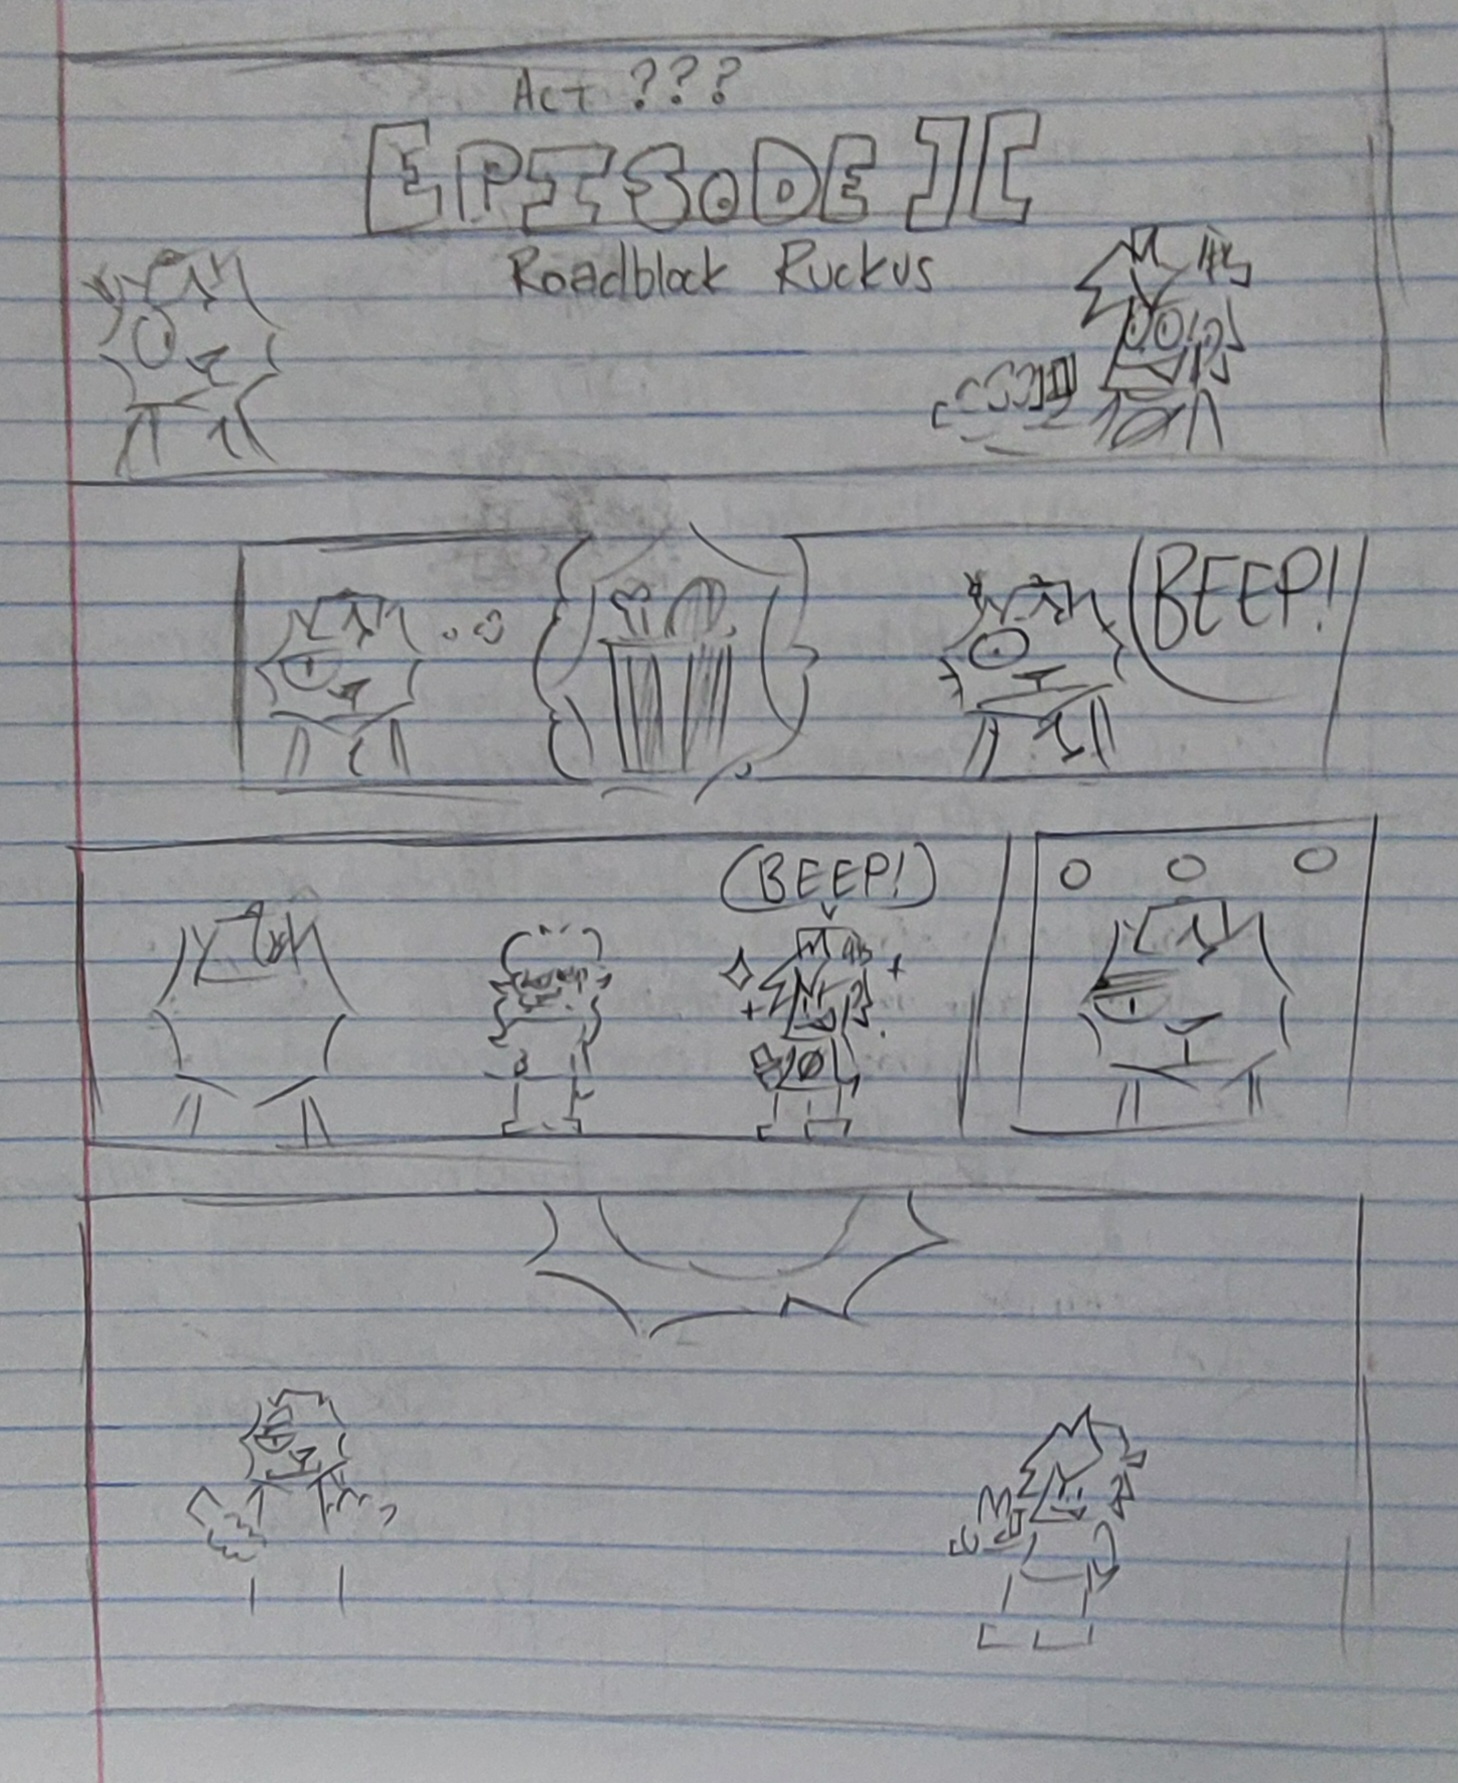 Act ???
EPISODE ][
Roadblock Ruckus
BEEP!
BEEP!